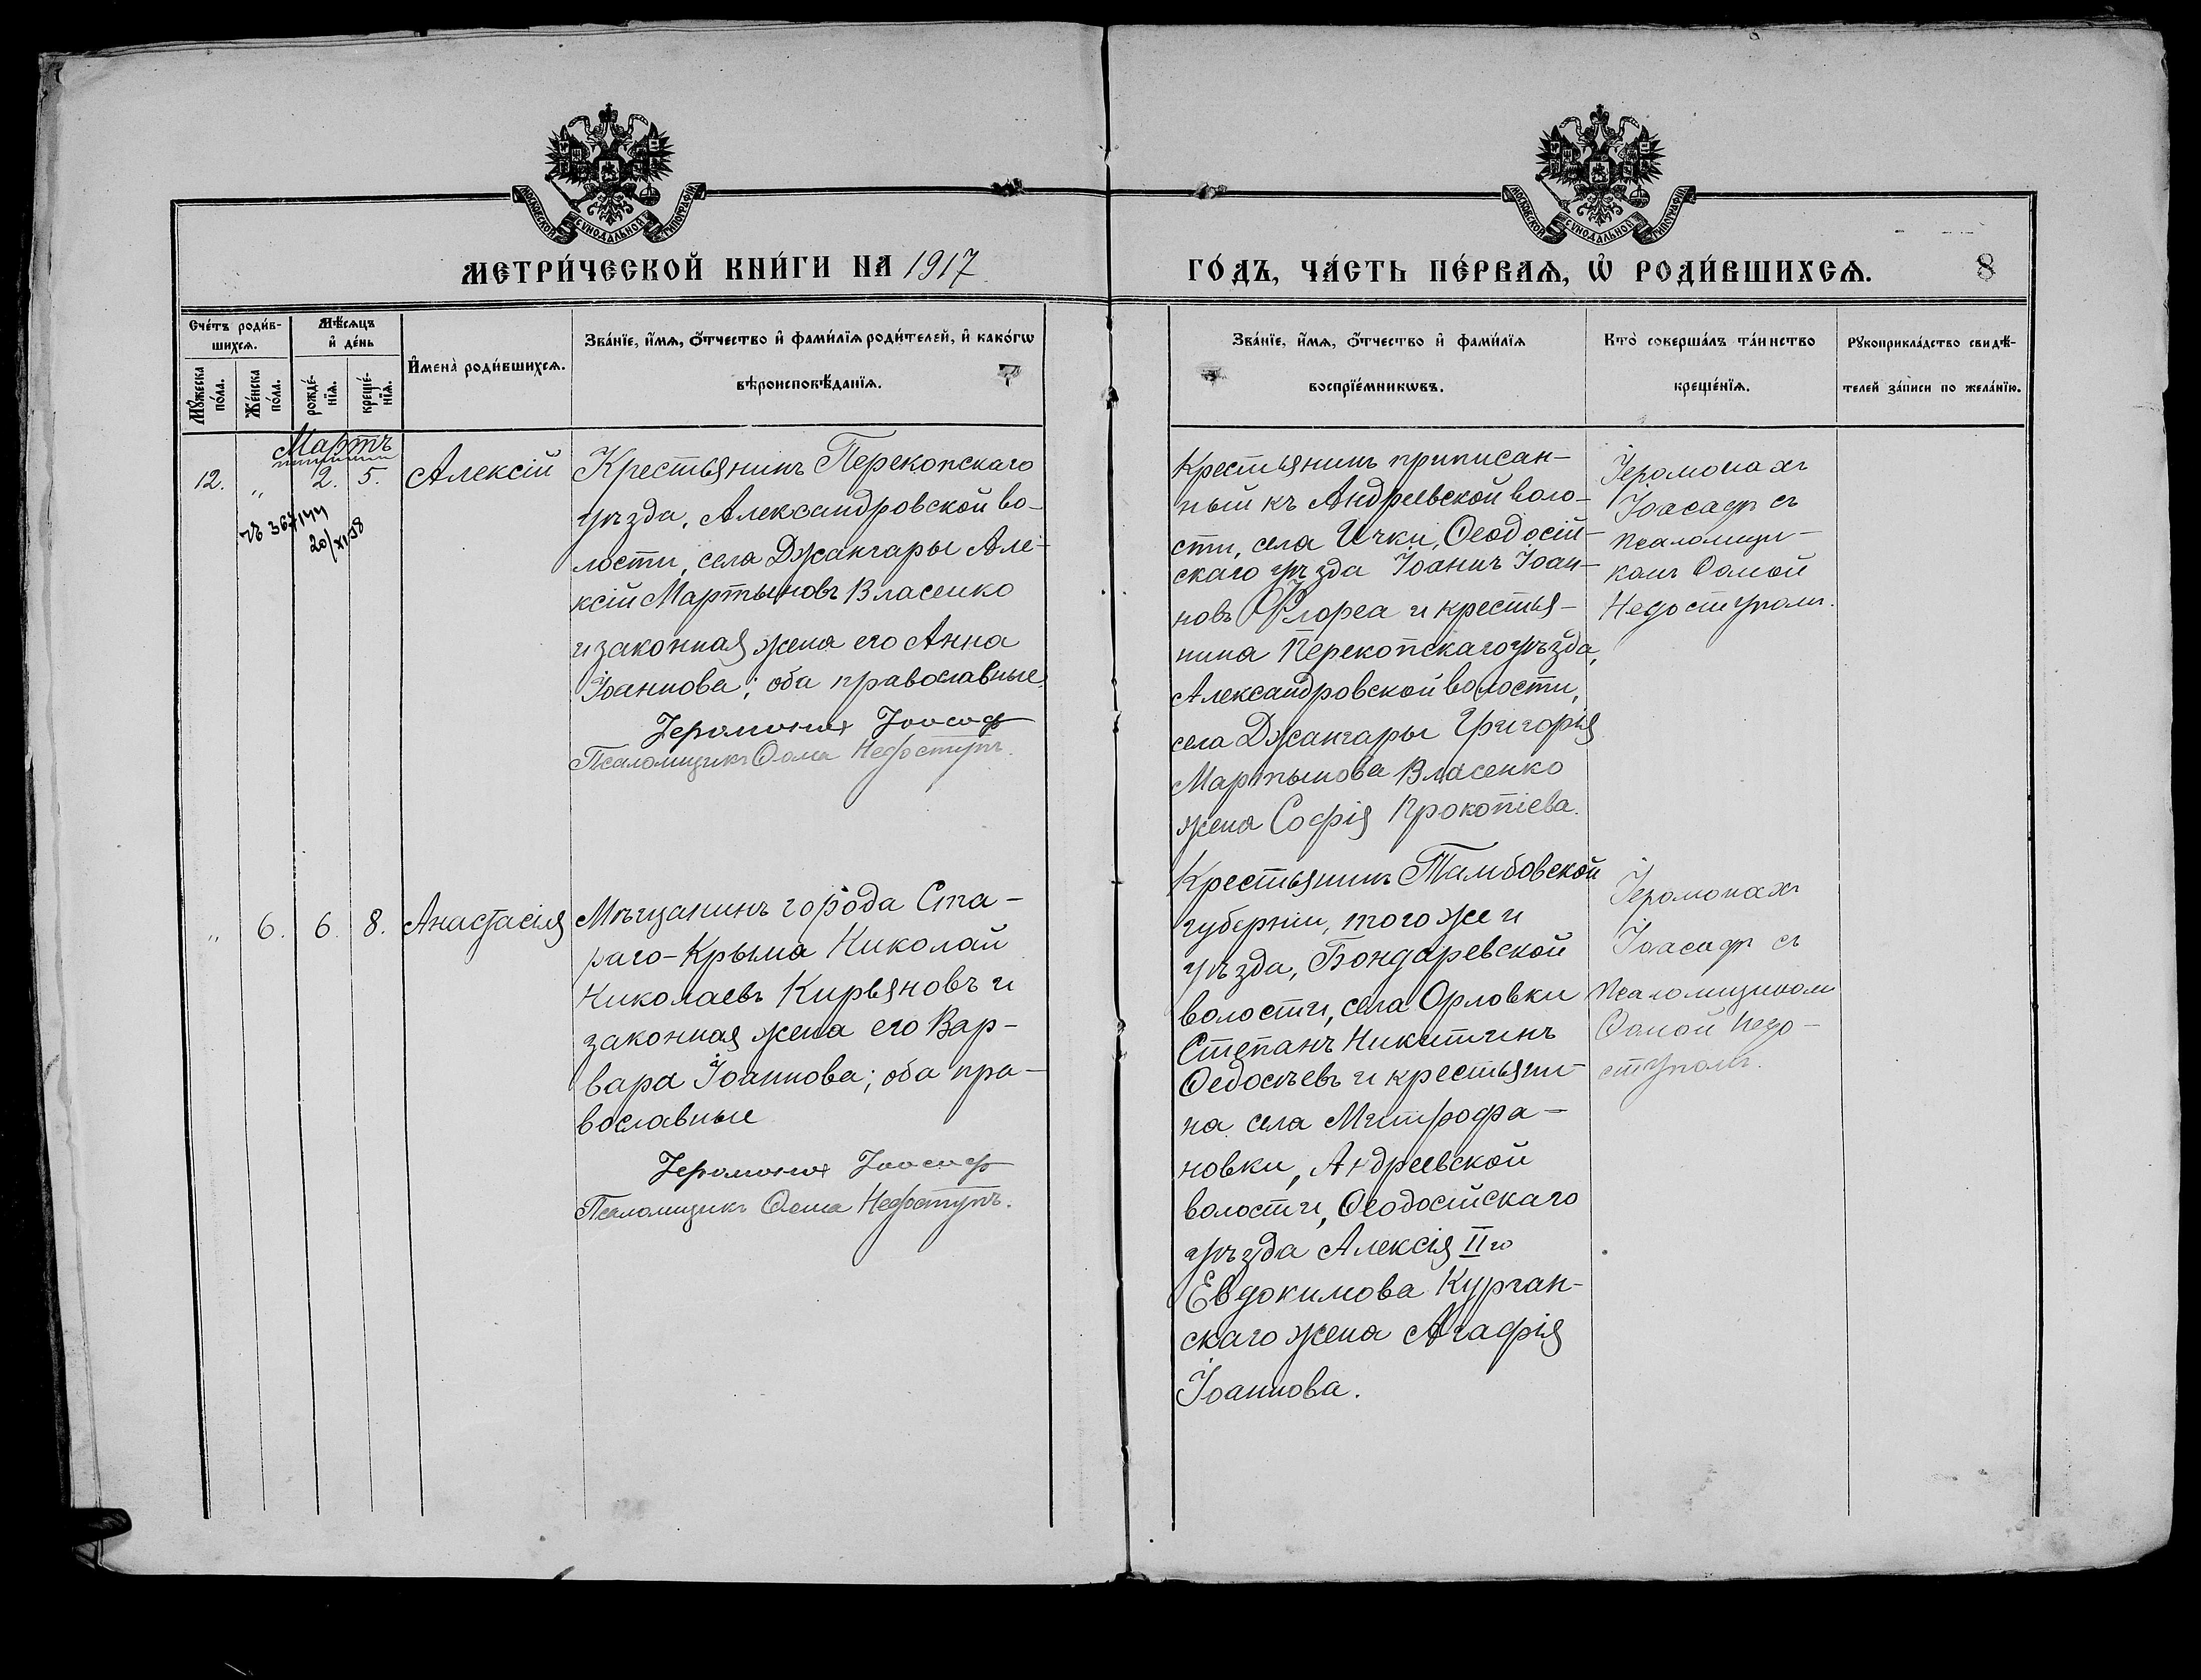 МОСКОВСКОЙ СУНОДАЛЬНОЙ ТИПОГРАФІИ
МОСКОВСКОЙ СУНОДАЛЬНОЙ ТИПОГРАФІИ
МЕТРИ́ЧЕСКОЙ КНИ́ГИ НА 1917
ГО́ДЪ, ЧА́СТЬ ПЕ́РВАѦ, Ѡ҆ РОДИ́ВШИХСѦ. 8
Сче́тъ роди́в-
шихсѧ.
Мꙋ́жеска по́ла.
Же́нска по́ла.
Мѣ́сѧцъ
и҆ де́нь
рожде́-
нїѧ.
креще́-
нїѧ.
И҆мена̀ роди́вшихсѧ.
Зва́нїе, и҆́мѧ, ѻ҆́тчество и҆ фами́лїѧ роди́телей, и҆ како́гѡ
вѣроисповѣ́данїѧ.
Зва́нїе, и҆́мѧ, ѻ҆́тчество и҆ фами́лїѧ
воспрїе́мникѡвъ.
Кто̀ соверша́лъ та́инство
креще́нїѧ.
Рꙋкоприкла́дство свидѣ́-
телей за́писи по жела́нїю.
Мартъ
12. „ 2. 5. Алексій
367144
20/XI 38
Крестьянинъ Перекопскаго
уѣзда, Александровской во-
лости, села Джангары Але-
ксій Мартыновъ Власенко
и законная жена его Анна
Іоаннова; оба православные.
Іеромонах Іоасаф
Псаломщикъ Ѳома Недоступъ.
Крестьянинъ приписан-
ный къ Андреевской воло-
сти, села Ички, Ѳеодосій-
скаго уѣзда Іоаннъ Іоан-
новъ Флореа и крестья-
нина Перекопскаго уѣзда,
Александровской волости,
села Джангары Григорія
Мартынова Власенко
жена Софія Прокопіева.
Іеромонахъ
Іоасафъ съ
псаломщи-
комъ Ѳомой
Недоступомъ.
„ 6. 6. 8. Анастасія
Мѣщанинъ города Ста-
раго-Крыма Николай
Николаевъ Кирьяновъ и
законная жена его Вар-
вара Іоаннова; оба пра-
вославные
Іеромонах Іоасаф
Псаломщикъ Ѳома Недоступъ.
Крестьянинъ Тамбовской
губерніи, того же и
уѣзда, Бондаревской
волости, села Орловки
Степанъ Никитинъ
Ѳедосѣевъ и крестьяни-
на села Митрофа-
новки, Андреевской
волости, Ѳеодосійскаго
уѣзда Алексія II го
Евдокимова Курган-
скаго жена Агафія
Іоаннова.
Іеромонахъ
Іоасафъ съ
псаломщикомъ
Ѳомой Недо-
ступомъ.